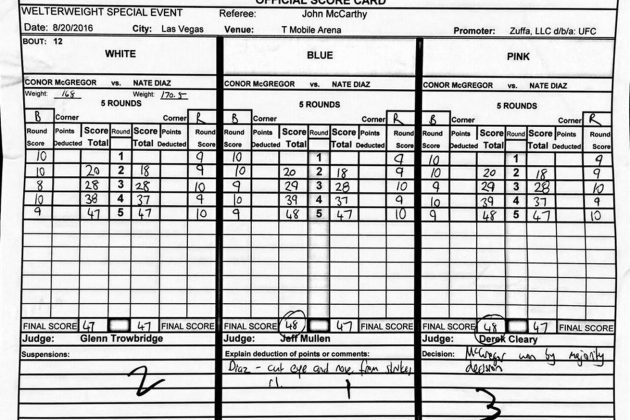 OFFICIAL SCORE CARD
WELTERWEIGHT SPECIAL EVENT Referee: John McCarthy
Date: 8/20/2016 City: Las Vegas Venue: T Mobile Arena Promoter: Zuffa, LLC d/b/a: UFC
BOUT: 12
WHITE BLUE PINK
CONOR McGREGOR vs. NATE DIAZ CONOR McGREGOR vs. NATE DIAZ CONOR McGREGOR vs. NATE DIAZ
Weight: 168 Weight: 170.5
5 ROUNDS 5 ROUNDS 5 ROUNDS
B Corner Corner R B Corner Corner R B Corner Corner R
Round Points Score Round Score Points Round Round Points Score Round Score Points Round Round Points Score Round Score Points Round
Score Deducted Total Total Deducted Score Score Deducted Total Total Deducted Score Score Deducted Total Total Deducted Score
10 1 9 10 1 9 10 1 9
10 20 2 18 9 10 20 2 18 9 10 20 2 18 9
8 28 3 28 10 9 29 3 28 10 9 29 3 28 10
10 38 4 37 9 10 39 4 37 9 10 39 4 37 9
9 47 5 47 10 9 48 5 47 10 9 48 5 47 10
FINAL SCORE 47 47 FINAL SCORE FINAL SCORE 48 47 FINAL SCORE FINAL SCORE 48 47 FINAL SCORE
Judge: Glenn Trowbridge Judge: Jeff Mullen Judge: Derek Cleary
Suspensions: Explain deduction of points or comments: Decision: McGregor won by majority
Diaz - cut eye and nose from strikes decision
2 1 3